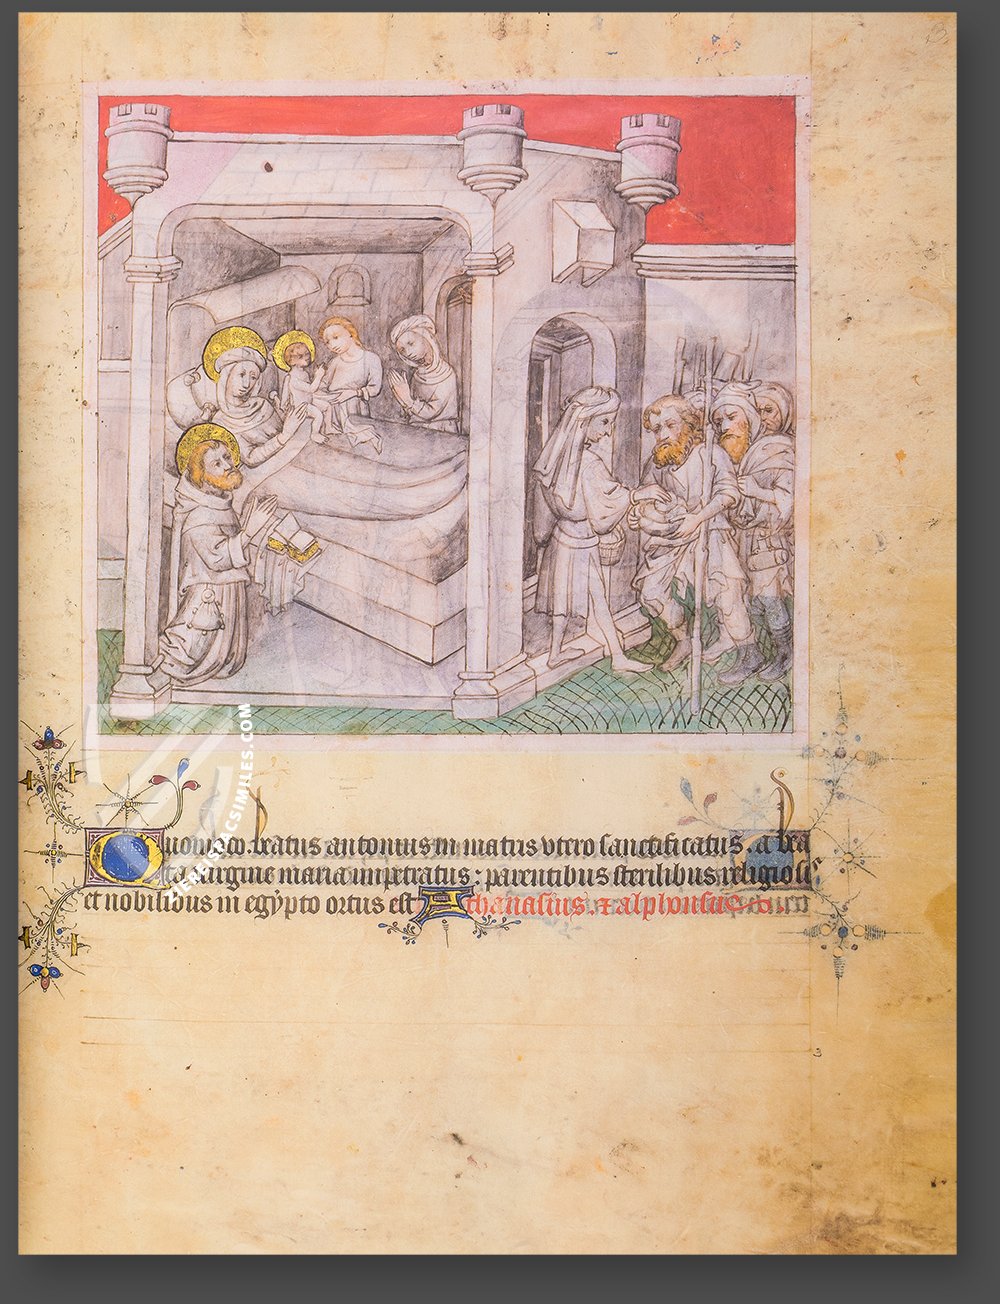 Quomodo beatus antonius in matris utero sanctificatus. a bea
ta virgine maria impetratus : parentibus sterilibus religiosis
et nobilibus in egypto ortus est Athanasius. et alphonsus
3
FACSIMILES.COM